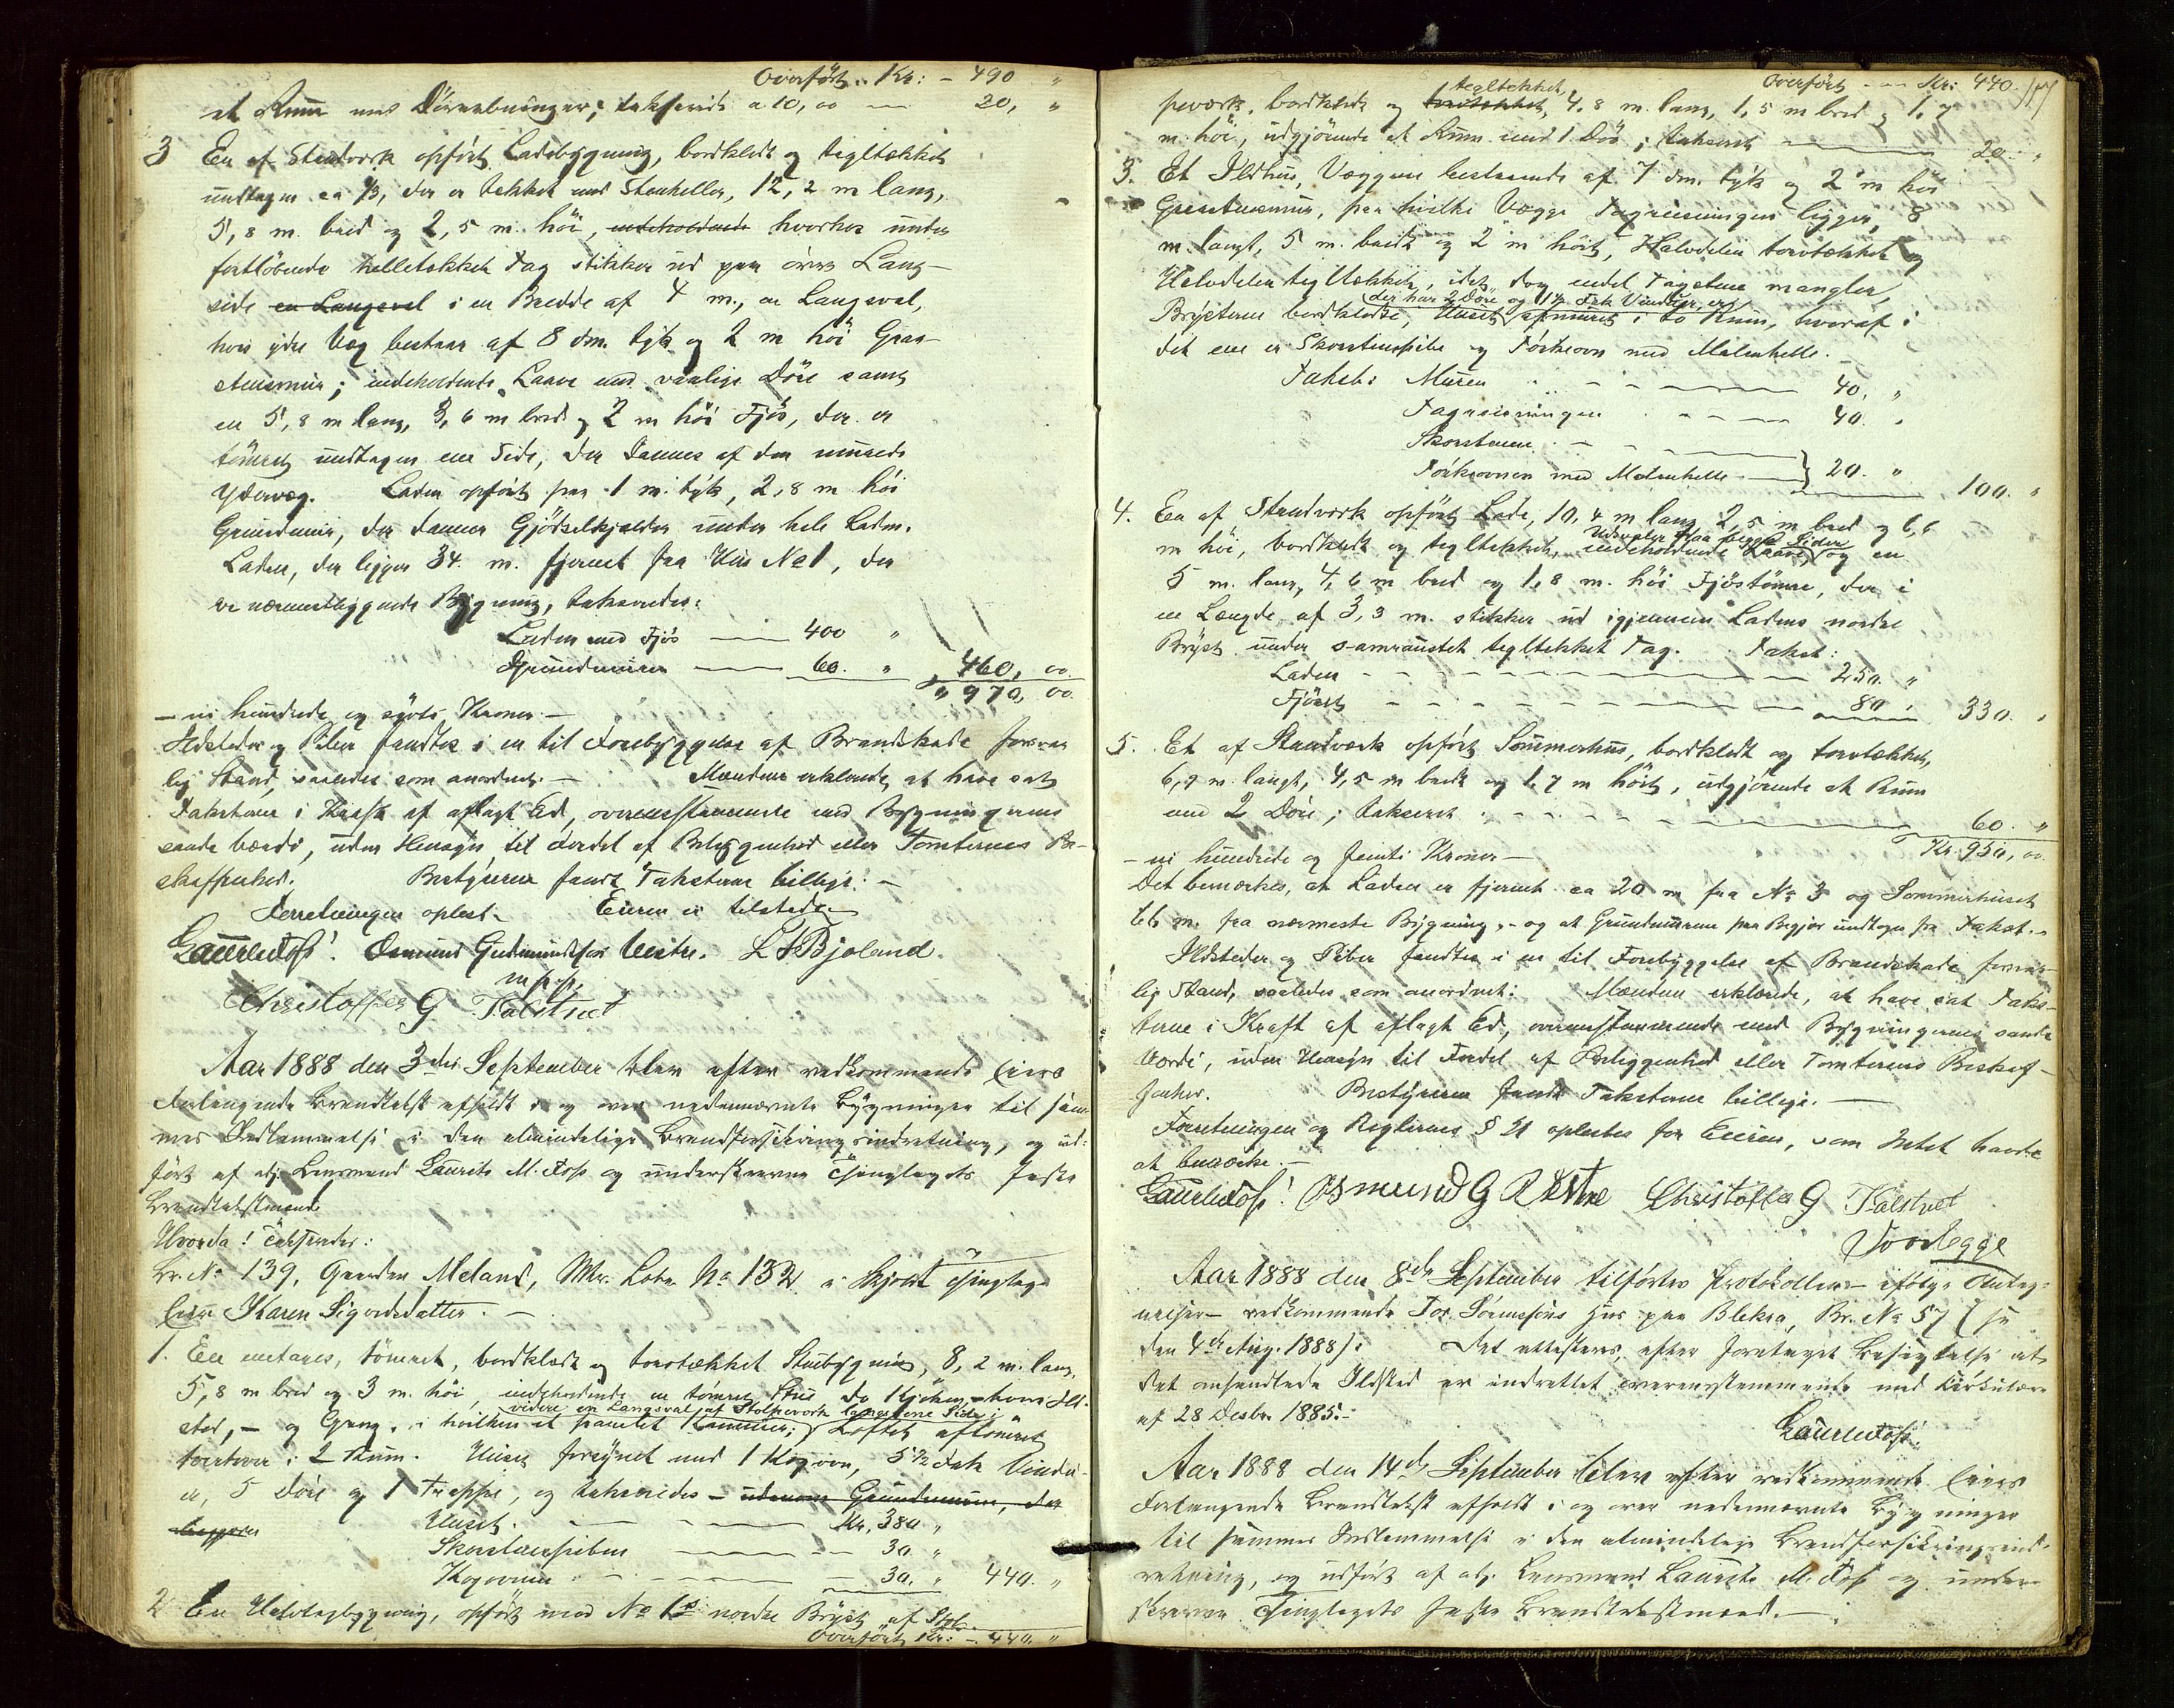 Overført .. Kr: – 490 "
et Rum med Døraabninger; takseredes a 10,00 — 20, "
3 En af Stavverk opført Ladebygning, bordklædt og tegltækket
undtagen ca 1/3, der er tækket med Stenheller, 12,2 m lang,
5,8 m. bred og 2,5 m. høi, indeholdende hvorhos under
fortløbende helletækket Tag stikker ud paa øvre Lang-
side en Langsval i en Bredde af 4 m., en Langsval,
hvis ydre Væg bestaar af 8 dm. tyk og 2 m høi Graa-
stensmur; indeholdende Laave med vanlige Døre samt
en 5,8 m lang, 3,6 m bred og 2 m høi Fjøs, der er
tømret undtagen ene Side, der dannes af den murede
Ydervæg. Laden opført paa 1 m. tyk, 2,8 m høi
Grundmur, der danner Gjødselkjelder under hele Laden.
Laden, der ligger 34 m. fjernet fra Hus No 1, der
er nærmestliggende Bygning, takseredes:
Laden med Fjøs — 400 "
Grundmuren — 60. " 460, 00.
" 970, 00.
– ni hundrede og sytti Kroner –
Ildsteder og Piber fandtes i en til Forebyggelse af Brandskade forsvar-
lig Stand, saaledes som anordnet. – Mændene erklærede, at have sat
Taksterne i Kraft af aflagt Ed, overensstemmende med Bygningernes
sande Værdi, uden Hensyn til Fordel af Beliggenhed eller Tomternes Be-
skaffenhed. Bestyreren fandt Taksterne billige. –
Forretningen oplæst. Eieren ei tilstede.
Lauritz Foss! Osmund Gudmundsen Vestre. L T Bjoland.
m f p.
Christoffer G Kalstvet
Aar 1888 den 3die September blev efter vedkommende Eiers
Forlangende Brandtakst afholdt i og over nedennævnte Bygninger til sam-
mes Indlemmelse i den almindelige Brandforsikringsindretning, og ud-
ført af adj. Lensmand Laurits M. Foss og underskrevne Thinglagets faste
Brandtakstmænd.
Hvorda! Takseredes:
Br. No 139, Gaarden Meland, Mtr. Løbe No 132 i Skjold Thinglag.
Eier Karen Sigvedsdatter. –
1. En enetages, tømret, bordklædt og torvtækket Stuebygning, 8,2 m. lang,
5,8 m bred og 3 m. høi, indeholdende en tømret Stue do Kjøken, – hvori Ild-
videre en Langsval af Stolpeverk langs ene Side;
sted, – og Gang, i hvilken et panelet Kammer; Loftet aftømret
tvertover i 2 Rum. Huset forsynet med 1 Kogovn, 5 1/2 Fak Vindu-
er, 5 Døre og 1 Trappe, og takseredes – udenom Grundmuren, der
Huset. – – – Kr. 380 "
Skorstenspiben — — 30. "
Kogovnen – — 30. " 440. "
2 En Halvtagbygning, opført mod No 1s nordre Bryst af Stol-
Overført Kr: – 440. "
Overført — Kr: 440. 177
tegltækket,
peværk, bordklædt og torvtækket, 4,8 m. lang, 1,5 m bred og 1,7
m. høi, udgjørende et Rum med 1 Dør; takseret — 20. "
3. Et Ildhus, Væggene bestaaende af 7 dm. tyk og 2 m høi
Graastensmur, paa hvilke Vægge Tagreisningen ligger, 8
m. langt, 5 m. bredt og 2 m høit, Halvdelen torvtækket og
Halvdelen tegltækket, idet dog endel Tagstene mangler,
der har 2 Døre og 1 1/2 Fak Vinduer, er
Brysterne bordklædte, Huset afmuret i to Rum, hvoraf i
det ene er Skorstenspibe og Tørkeovn med Malenhelle.
Takst: Muren – – — 40, "
Tagreisningen – – — 40. "
Skorstenen – –
Tørkeovnen med Malenhelle — } 20. " 100. "
4. En af Stavverk opført Lade, 10,4 m lang, 2,5 m bred og 6,6
Udsvaler paa begge Sider
m høi, bordklædt og tegltækket, indeholdende Laave, og en
5 m. lang, 4,6 m bred og 1,8 m. høi Fjøstømre, der i
en Længde af 3,3 m. stikker ud igjennem Ladens nordre
Bryst under samraustet tegltækket Tag. Takst:
Laden – – – — 250. "
Fjøset – – – — 80 " 330. "
5. Et af Stavverk opført Sommerhus, bordklædt og torvtækket,
6,7 m. langt, 4,5 m bredt og 1,7 m høit, udgjørende et Rum
med 2 Døre; takseret – – – — 60. "
– ni hundrede og femti Kroner – Kr. 950, 00.
Det bemærkes, at Laden er fjernet ca 20 m fra No 3 og Sommerhuset
66 m. fra nærmeste Bygning, – og at Grundmuren paa Begjær undtages fra Takst. –
Ildsteder og Piber fandtes i en til Forebyggelse af Brandskade forsvar-
lig Stand, saaledes som anordnet: Mændene erklærede, at have sat Tak-
sterne i Kraft af aflagt Ed, overensstemmende med Bygningernes sande
Værdi, uden Hensyn til Fordel af Beliggenhed eller Tomternes Beskaf-
fenhed. Bestyreren fandt Taksterne billige. –
Forretningen og Reglernes § 21 oplæstes for Eieren, som Intet havde
at bemærke. –
Lauritz Foss! Osmund G Vestre Christoffer G Kalstvet
Aar 1888 den 8de September tilførtes Protokollen – ifølge Anteg-
nelser – vedkommende Tor Sørensens Hus paa Bleksa, Br. No 57 (se
den 4de Aug. 1888): Det attesteres, efter foretaget Besigtelse at
det omhandlede Ildsted er indrettet overensstemmende med Cirkulære
af 28 Desbr. 1885. –
Lauritz Foss.
Aar 1888 den 14de September blev efter vedkommende Eiers
Forlangende Brandtakst afholdt i og over nedennævnte Bygninger
til sammes Indlemmelse i den almindelige Brandforsikringsind-
retning, og udført af adj. Lensmand Laurits M. Foss og under-
skrevne Thinglagets faste Brandtakstmænd. –